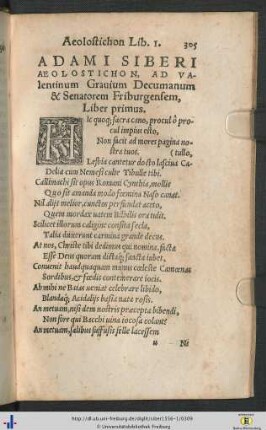 Aeolostichon Lib. 1. 305
ADAMI SIBERI
AEOLOSTICHON, AD VA-
lentinum Grauium Decumanum
& Senatorem Friburgensem,
Liber primus.
Hic quoq; sacra cano, procul ô procul
cul impius esto,
Non facit ad mores pagina nostra
stra tuos. (tullo,
Lesbia cantetur docto lasciua Ca-
Delia cum Nemesi culte Tibulle tibi.
Callimachi sit opus Romani Cynthia, mollis
Quo sit amanda modo femina Naso canat.
Nil aliis melior cunctis persuadet
Quem mordax uatem Bilbilis ora tulit.
Scilicet illorum caligine consita secla,
Talia dixerunt carmina grande decus.
At nos, Christe tibi dedimus qui nomina, sacra
Esse Deus quorum dictaq; sancta iubet,
Conuenit haudquaquam munus coeleste Camoenas
Sordibus, & foedis contemerare iocis.
Ah mihi ne Baias ueniat celebrare libido,
Blandaq; Acidaliis basia nata rosis.
An metuam, nisi dem nostris praecepta bibendi,
Non fore qui Bacchi uina iocosa colant?
An metuam, salibus suffusis felle lacessem
u Ni
http://dl.ub.uni-freiburg.de/diglit/siber1556-1/0309
© Universitätsbibliothek Freiburg